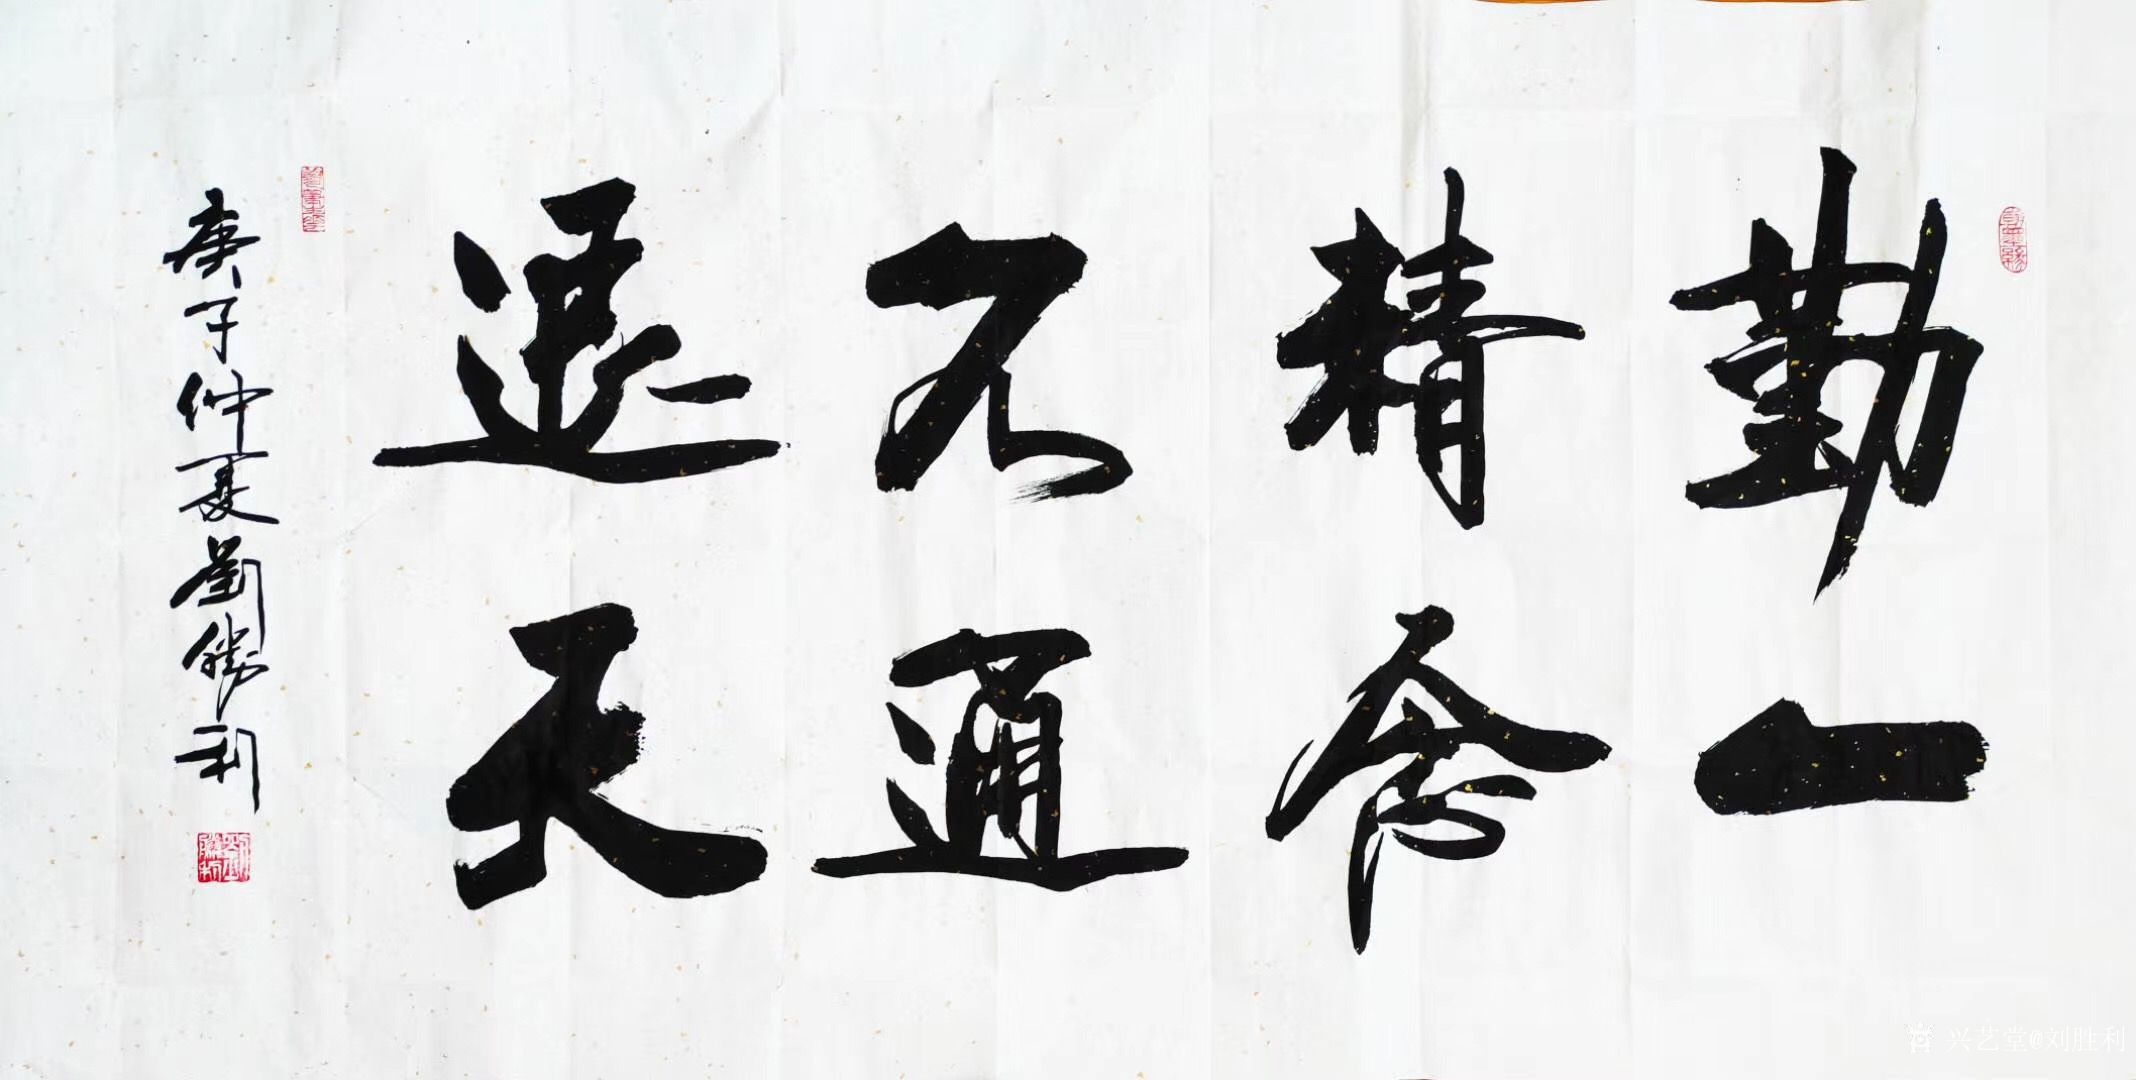 勤一
精念
不通
退天
庚子仲夏劉勝利
兴艺堂@刘胜利